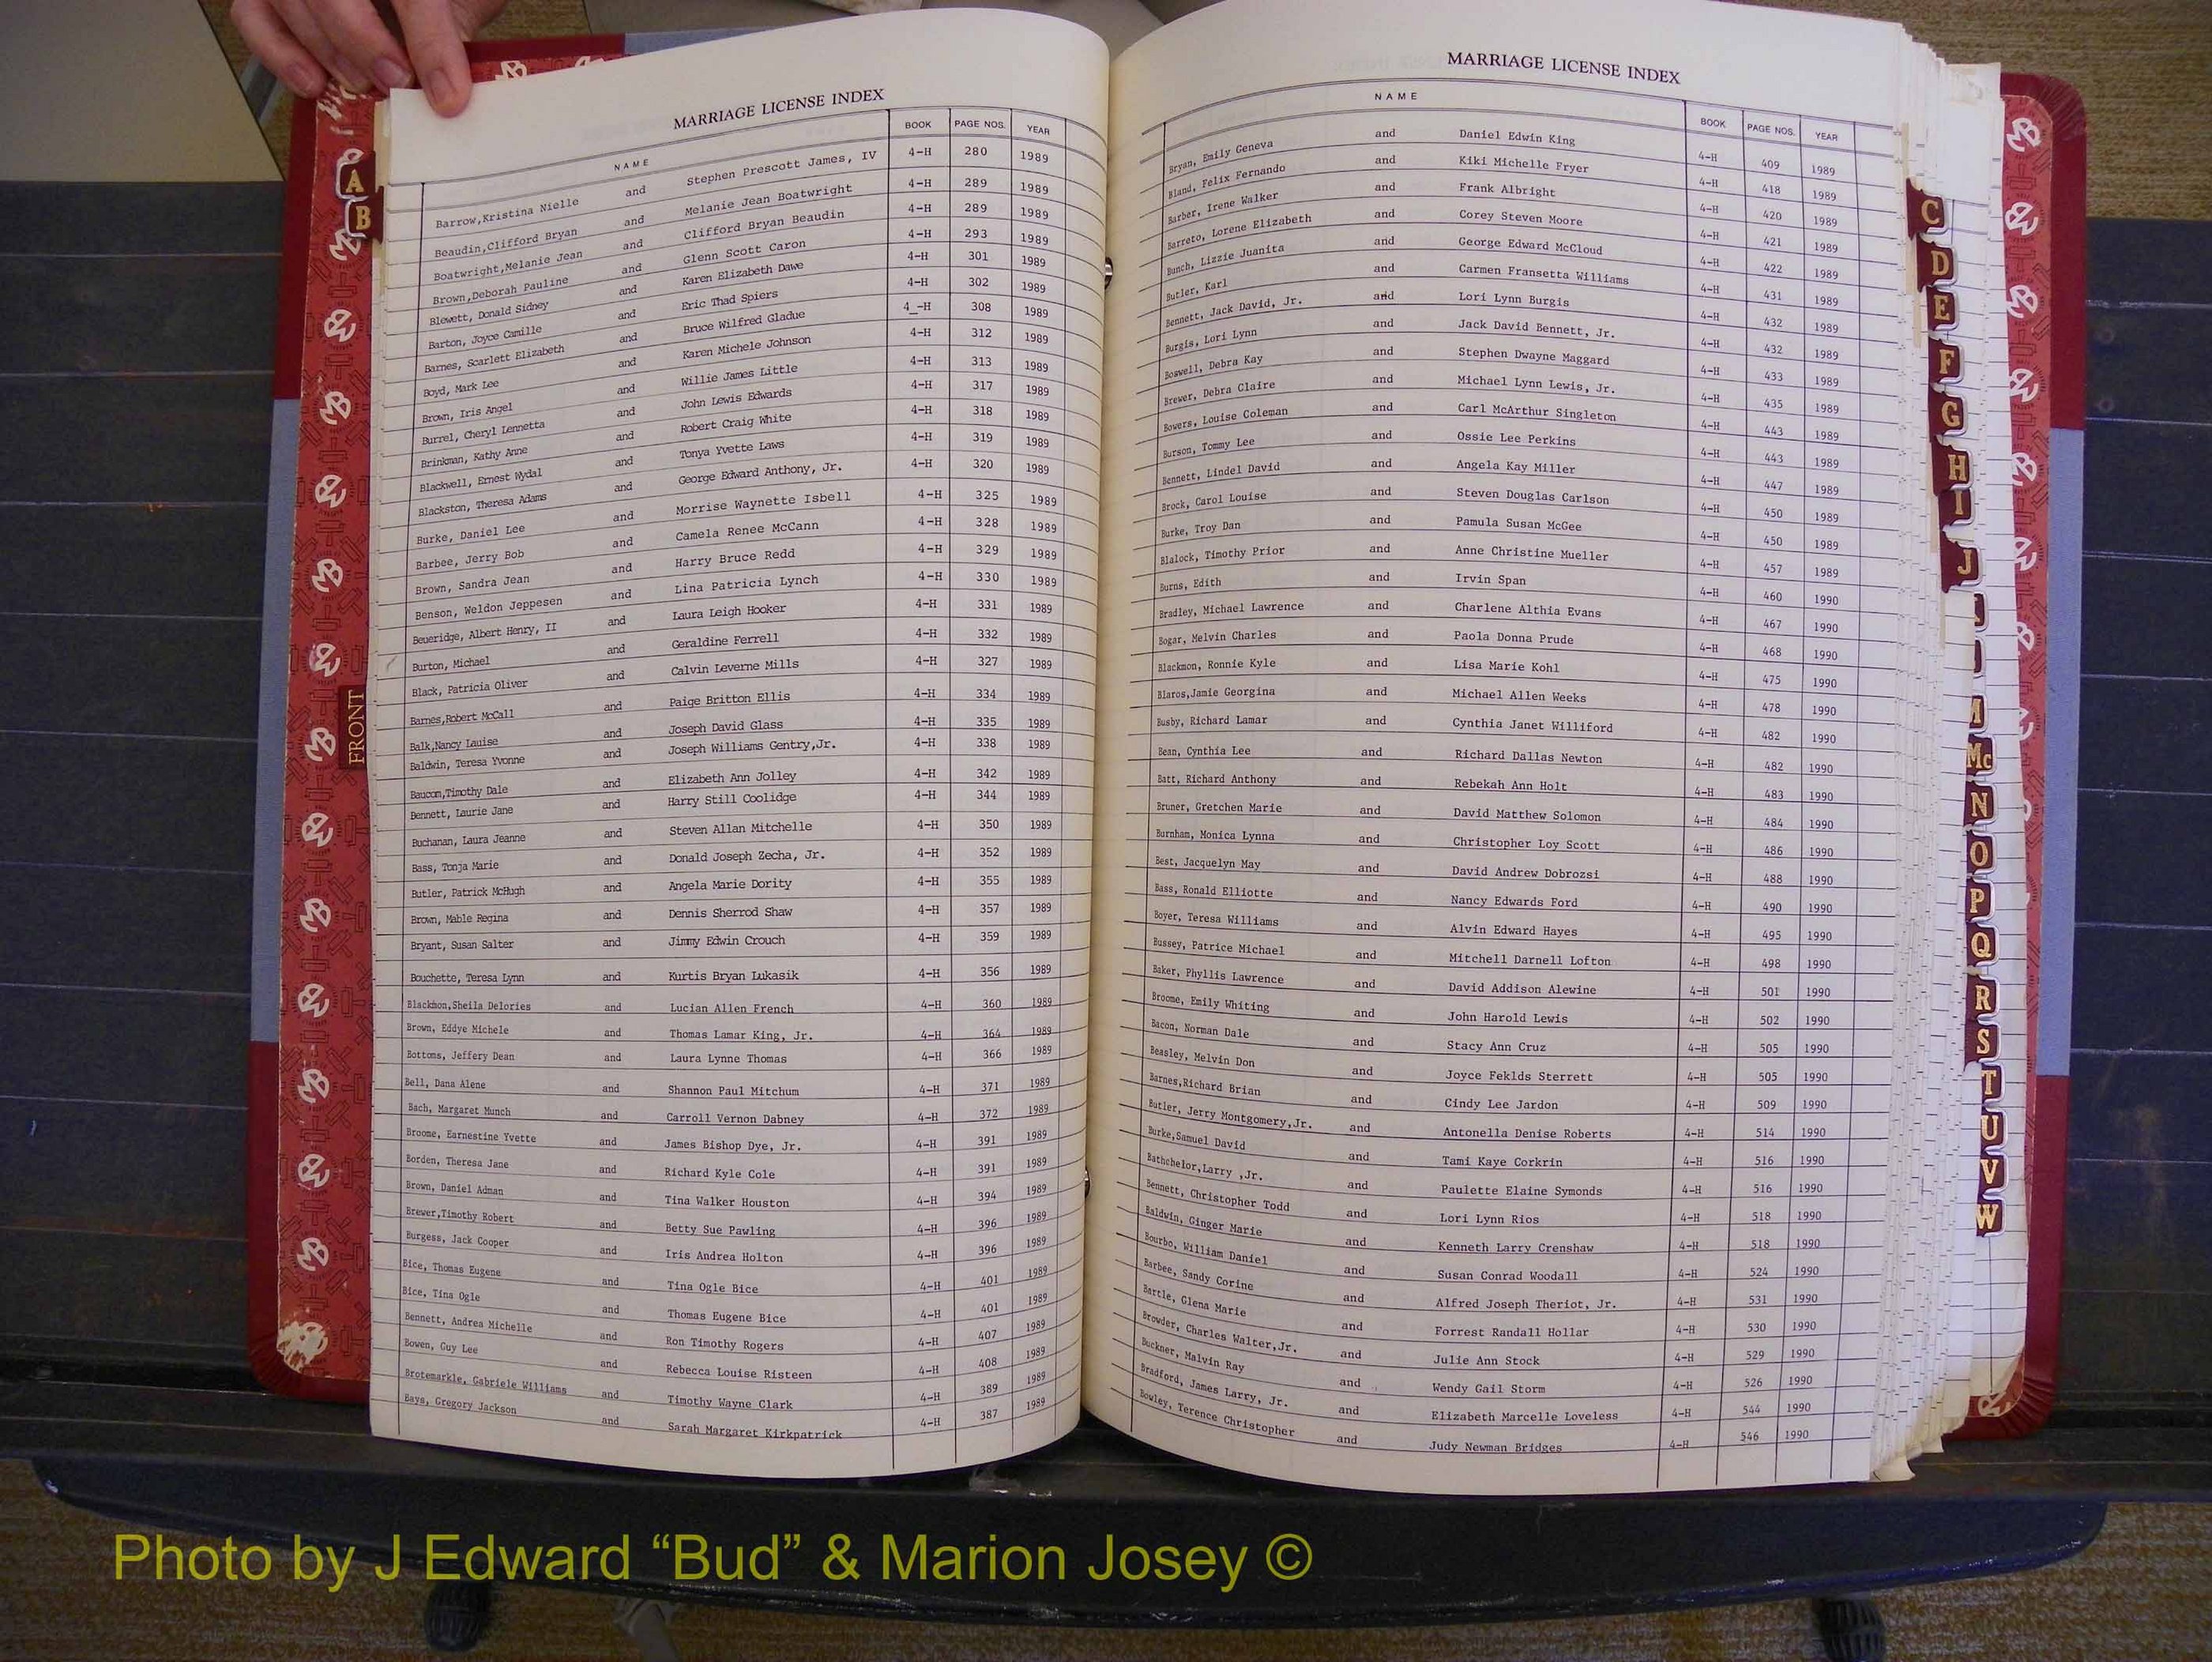 MARRIAGE LICENSE INDEX
NAME BOOK PAGE NOS. YEAR
Barrow,Kristina Nielle and Stephen Prescott James, IV 4-H 280 1989
Beaudin,Clifford Bryan and Melanie Jean Boatwright 4-H 289 1989
Boatwright,Melanie Jean and Clifford Bryan Beaudin 4-H 289 1989
Brown,Deborah Pauline and Glenn Scott Caron 4-H 293 1989
Blewett, Donald Sidney and Karen Elizabeth Dawe 4-H 301 1989
Barton, Joyce Camille and Eric Thad Spiers 4-H 302 1989
Barnes, Scarlett Elizabeth and Bruce Wilfred Gladue 4_-H 308 1989
Boyd, Mark Lee and Karen Michele Johnson 4-H 312 1989
Brown, Iris Angel and Willie James Little 4-H 313 1989
Burrel, Cheryl Lennetta and John Lewis Edwards 4-H 317 1989
Brinkman, Kathy Anne and Robert Craig White 4-H 318 1989
Blackwell, Ernest Wydal and Tonya Yvette Laws 4-H 319 1989
Blackston, Theresa Adams and George Edward Anthony, Jr. 4-H 320 1989
Burke, Daniel Lee and Morrise Waynette Isbell 4-H 325 1989
Barbee, Jerry Bob and Camela Renee McCann 4-H 328 1989
Brown, Sandra Jean and Harry Bruce Redd 4-H 329 1989
Benson, Weldon Jeppesen and Lina Patricia Lynch 4-H 330 1989
Beueridge, Albert Henry, II and Laura Leigh Hooker 4-H 331 1989
Burton, Michael and Geraldine Ferrell 4-H 332 1989
Black, Patricia Oliver and Calvin Leverne Mills 4-H 327 1989
Barnes,Robert McCall and Paige Britton Ellis 4-H 334 1989
Balk,Nancy Lauise and Joseph David Glass 4-H 335 1989
Baldwin, Teresa Yvonne and Joseph Williams Gentry,Jr. 4-H 338 1989
Baucom,Timothy Dale and Elizabeth Ann Jolley 4-H 342 1989
Bennett, Laurie Jane and Harry Still Coolidge 4-H 344 1989
Buchanan, Laura Jeanne and Steven Allan Mitchelle 4-H 350 1989
Bass, Tonja Marie and Donald Joseph Zecha, Jr. 4-H 352 1989
Butler, Patrick McHugh and Angela Marie Dority 4-H 355 1989
Brown, Mable Regina and Dennis Sherrod Shaw 4-H 357 1989
Bryant, Susan Salter and Jimmy Edwin Crouch 4-H 359 1989
Bouchette, Teresa Lynn and Kurtis Bryan Lukasik 4-H 356 1989
Blackmon,Sheila Delories and Lucian Allen French 4-H 360 1989
Brown, Eddye Michele and Thomas Lamar King, Jr. 4-H 364 1989
Bottoms, Jeffery Dean and Laura Lynne Thomas 4-H 366 1989
Bell, Dana Alene and Shannon Paul Mitchum 4-H 371 1989
Bach, Margaret Munch and Carroll Vernon Dabney 4-H 372 1989
Broome, Earnestine Yvette and James Bishop Dye, Jr. 4-H 391 1989
Borden, Theresa Jane and Richard Kyle Cole 4-H 391 1989
Brown, Daniel Adman and Tina Walker Houston 4-H 394 1989
Brewer,Timothy Robert and Betty Sue Pawling 4-H 396 1989
Burgess, Jack Cooper and Iris Andrea Holton 4-H 396 1989
Bice, Thomas Eugene and Tina Ogle Bice 4-H 401 1989
Bice, Tina Ogle and Thomas Eugene Bice 4-H 401 1989
Bennett, Andrea Michelle and Ron Timothy Rogers 4-H 407 1989
Bowen, Guy Lee and Rebecca Louise Risteen 4-H 408 1989
Brotemarkle, Gabriele Williams and Timothy Wayne Clark 4-H 389 1989
Bays, Gregory Jackson and Sarah Margaret Kirkpatrick 4-H 387 1989
MARRIAGE LICENSE INDEX
NAME BOOK PAGE NOS. YEAR
Bryan, Emily Geneva and Daniel Edwin King 4-H 409 1989
Bland, Felix Fernando and Kiki Michelle Fryer 4-H 418 1989
Barber, Irene Walker and Frank Albright 4-H 420 1989
Barreto, Lorene Elizabeth and Corey Steven Moore 4-H 421 1989
Bunch, Lizzie Juanita and George Edward McCloud 4-H 422 1989
Butler, Karl and Carmen Fransetta Williams 4-H 431 1989
Bennett, Jack David, Jr. and Lori Lynn Burgis 4-H 432 1989
Burgis, Lori Lynn and Jack David Bennett, Jr. 4-H 432 1989
Boswell, Debra Kay and Stephen Dwayne Maggard 4-H 433 1989
Brewer, Debra Claire and Michael Lynn Lewis, Jr. 4-H 435 1989
Bowers, Louise Coleman and Carl McArthur Singleton 4-H 443 1989
Burson, Tommy Lee and Ossie Lee Perkins 4-H 443 1989
Bennett, Lindel David and Angela Kay Miller 4-H 447 1989
Brock, Carol Louise and Steven Douglas Carlson 4-H 450 1989
Burke, Troy Dan and Pamula Susan McGee 4-H 450 1989
Blalock, Timothy Prior and Anne Christine Mueller 4-H 457 1989
Burns, Edith and Irvin Span 4-H 460 1990
Bradley, Michael Lawrence and Charlene Althia Evans 4-H 467 1990
Bogar, Melvin Charles and Paola Donna Prude 4-H 468 1990
Blackmon, Ronnie Kyle and Lisa Marie Kohl 4-H 475 1990
Blaros,Jamie Georgina and Michael Allen Weeks 4-H 478 1990
Busby, Richard Lamar and Cynthia Janet Williford 4-H 482 1990
Bean, Cynthia Lee and Richard Dallas Newton 4-H 482 1990
Batt, Richard Anthony and Rebekah Ann Holt 4-H 483 1990
Bruner, Gretchen Marie and David Matthew Solomon 4-H 484 1990
Burnham, Monica Lynna and Christopher Loy Scott 4-H 486 1990
Best, Jacquelyn May and David Andrew Dobrozsi 4-H 488 1990
Bass, Ronald Elliotte and Nancy Edwards Ford 4-H 490 1990
Boyer, Teresa Williams and Alvin Edward Hayes 4-H 495 1990
Bussey, Patrice Michael and Mitchell Darnell Lofton 4-H 498 1990
Baker, Phyllis Lawrence and David Addison Alewine 4-H 501 1990
Broome, Emily Whiting and John Harold Lewis 4-H 502 1990
Bacon, Norman Dale and Stacy Ann Cruz 4-H 505 1990
Beasley, Melvin Don and Joyce Feklds Sterrett 4-H 505 1990
Barnes,Richard Brian and Cindy Lee Jardon 4-H 509 1990
Butler, Jerry Montgomery,Jr. and Antonella Denise Roberts 4-H 514 1990
Burke,Samuel David and Tami Kaye Corkrin 4-H 516 1990
Bathchelor,Larry ,Jr. and Paulette Elaine Symonds 4-H 516 1990
Bennett, Christopher Todd and Lori Lynn Rios 4-H 518 1990
Baldwin, Ginger Marie and Kenneth Larry Crenshaw 4-H 518 1990
Bourbo, William Daniel and Susan Conrad Woodall 4-H 524 1990
Barbee, Sandy Corine and Alfred Joseph Theriot, Jr. 4-H 531 1990
Bartle, Glena Marie and Forrest Randall Hollar 4-H 530 1990
Browder, Charles Walter,Jr. and Julie Ann Stock 4-H 529 1990
Buckner, Malvin Ray and Wendy Gail Storm 4-H 526 1990
Bradford, James Larry, Jr. and Elizabeth Marcelle Loveless 4-H 544 1990
Bowley, Terence Christopher and Judy Newman Bridges 4-H 546 1990
A
B
FRONT
C
D
E
F
G
H
I
J
M
Mc
N
O
P
Q
R
S
T
U
V
W
Photo by J Edward “Bud” & Marion Josey ©